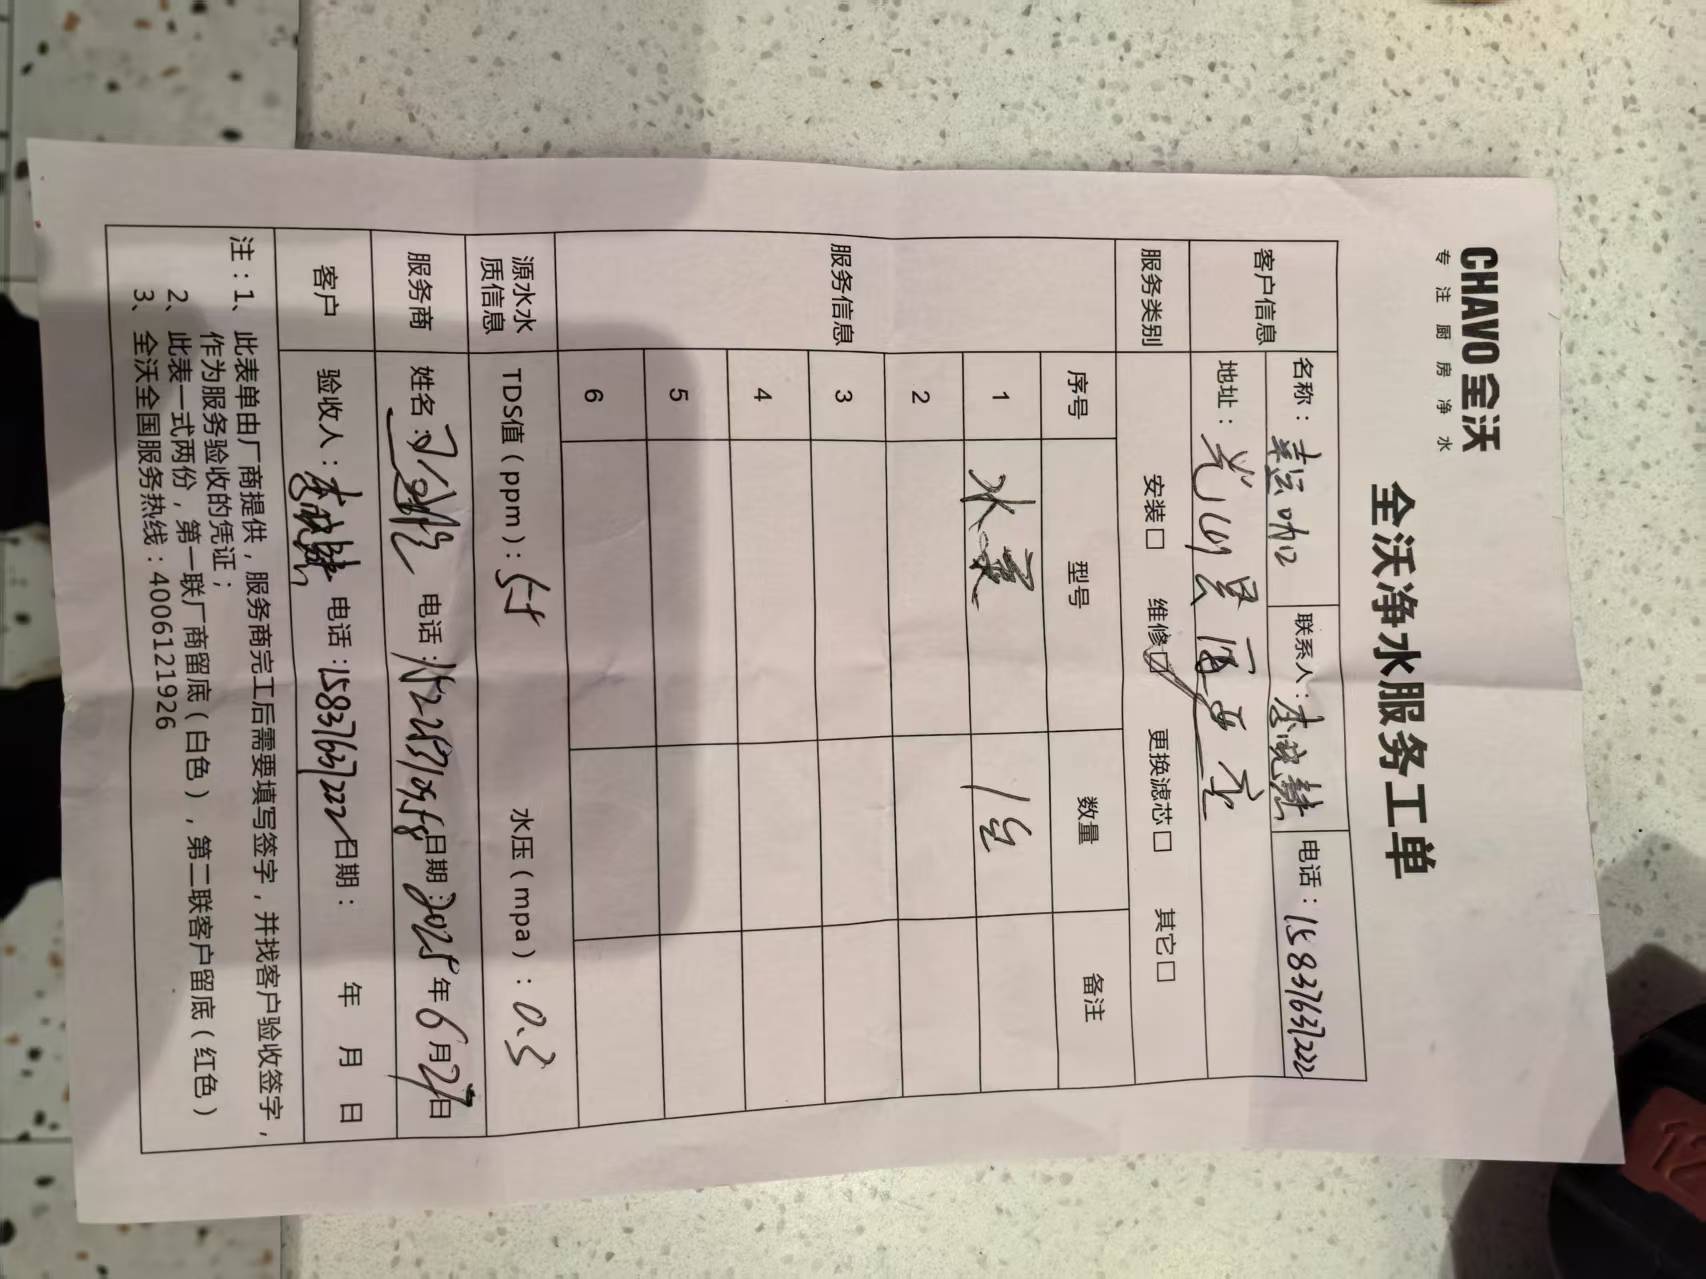 CHAVO 全沃
专注厨房净水
全沃净水服务工单
客户信息 名称： 联系人：李晓慧 电话：15837637222
地址：光山县
服务类别 安装□ 维修☑ 更换滤芯□ 其它□
服务信息 序号 型号 数量 备注
1 水 1台
2
3
4
5
6
源水水质信息 TDS值（ppm）：55 水压（mpa）：0.3
服务商 姓名： 电话： 日期：2025年6月27日
客户 验收人：李晓慧 电话：15837637222 日期： 年 月 日
注：1、此表单由厂商提供，服务商完工后需要填写签字，并找客户验收签字，
作为服务验收的凭证；
2、此表一式两份，第一联厂商留底（白色），第二联客户留底（红色）
3、全沃全国服务热线：4006121926